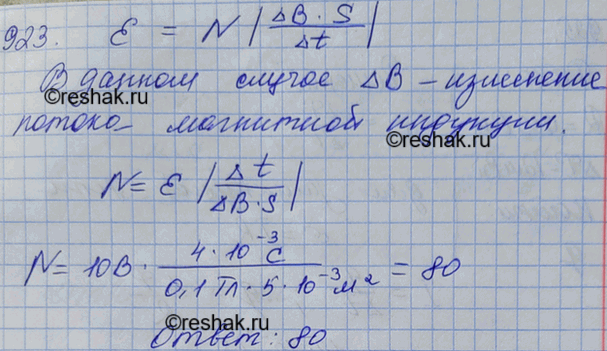 923. Ɛ = N |ΔB · S / Δt|
В данном случае ΔB – изменение
©reshak.ru
потока магнитной индукции.
©reshak.ru
N = Ɛ |Δt / ΔB · S|
N = 10В · 4 · 10⁻³ С / 0,1 Тл · 5 · 10⁻³ м² = 80
©reshak.ru
Ответ: 80